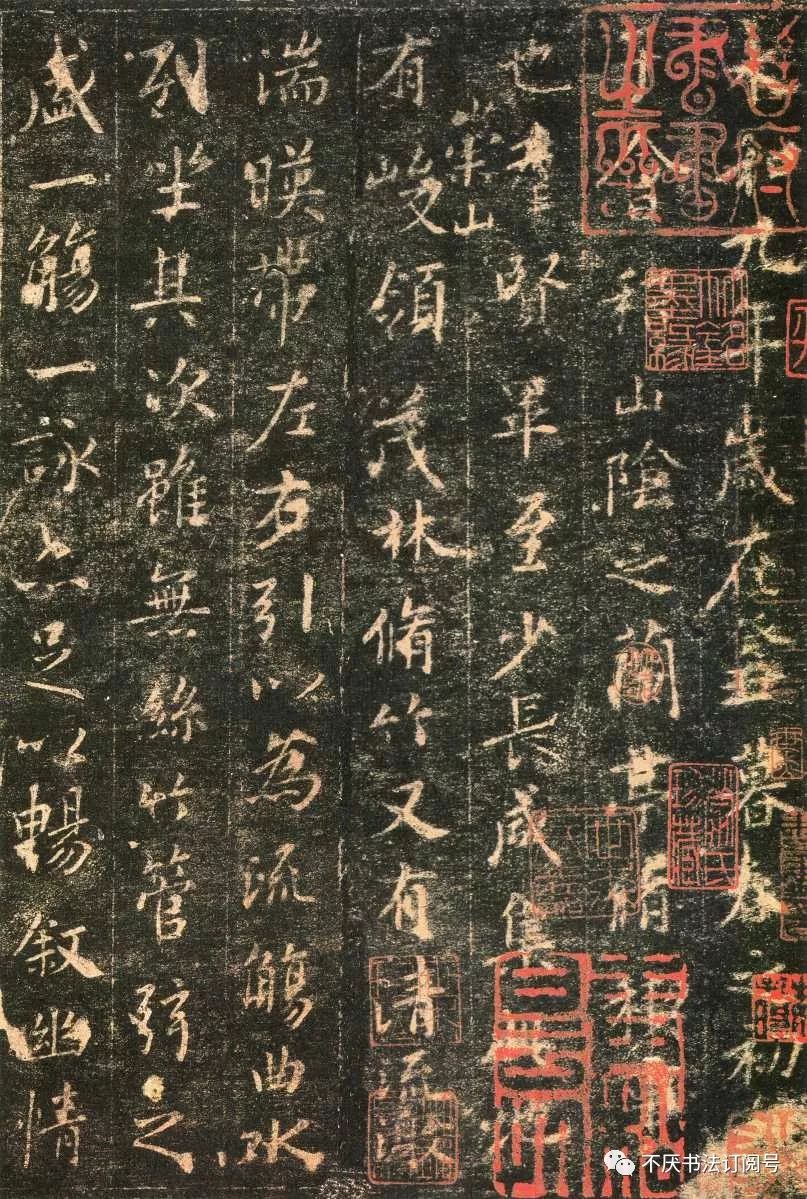 永和九年歲在癸丑暮春之初
會稽山陰之蘭亭脩稧
也羣賢畢至少長咸集此地
有崇山峻領茂林脩竹又有清流激
湍暎帶左右引以為流觴曲水
列坐其次雖無絲竹管弦之
盛一觴一詠亦足以暢敘幽情
不厌书法订阅号